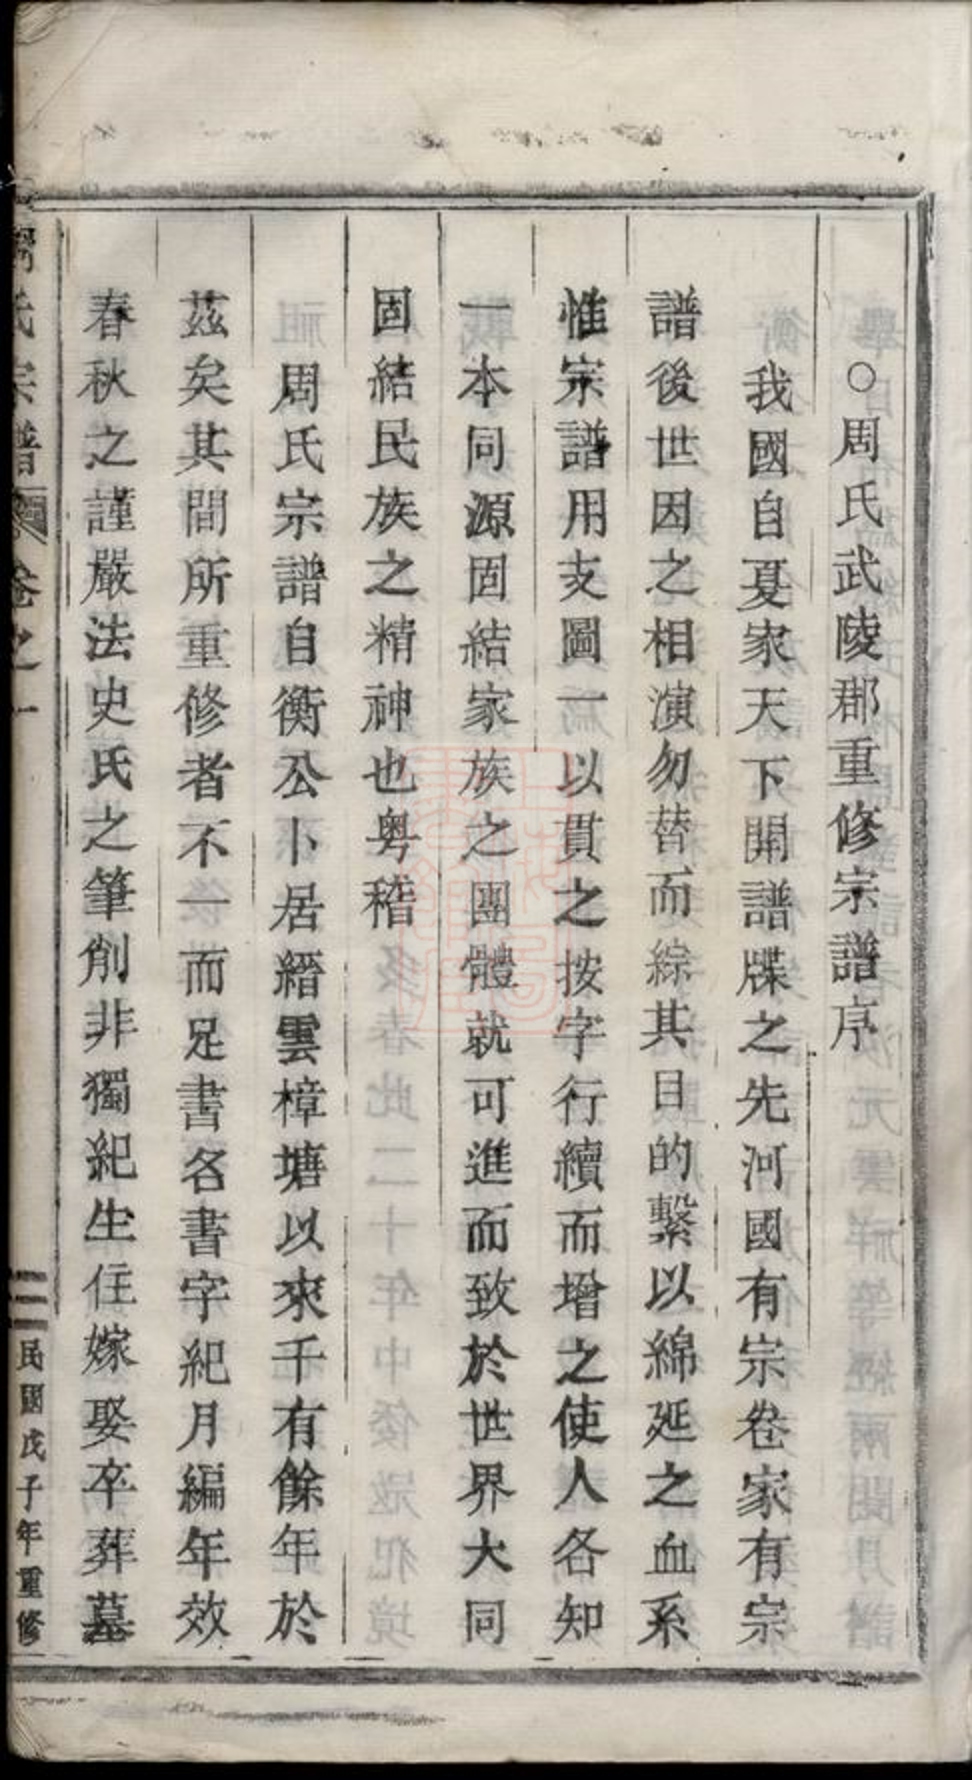 ○周氏武陵郡重修宗譜序
我國自夏家天下開譜牒之先河國有宗卷家有宗
譜後世因之相演勿替而綜其目的繫以綿延之血系
惟宗譜用支圖一以貫之按字行續而增之使人各知
一本同源固結家族之團體就可進而致於世界大同
固結民族之精神也粤稽
周氏宗譜自衡公卜居縉雲樟塘以來千有餘年於
茲矣其間所重修者不一而足書名書字紀月編年效
春秋之謹嚴法史氏之筆削非獨紀生住嫁娶卒葬墓
周氏宗譜 卷之一 二 民國戊子年重修